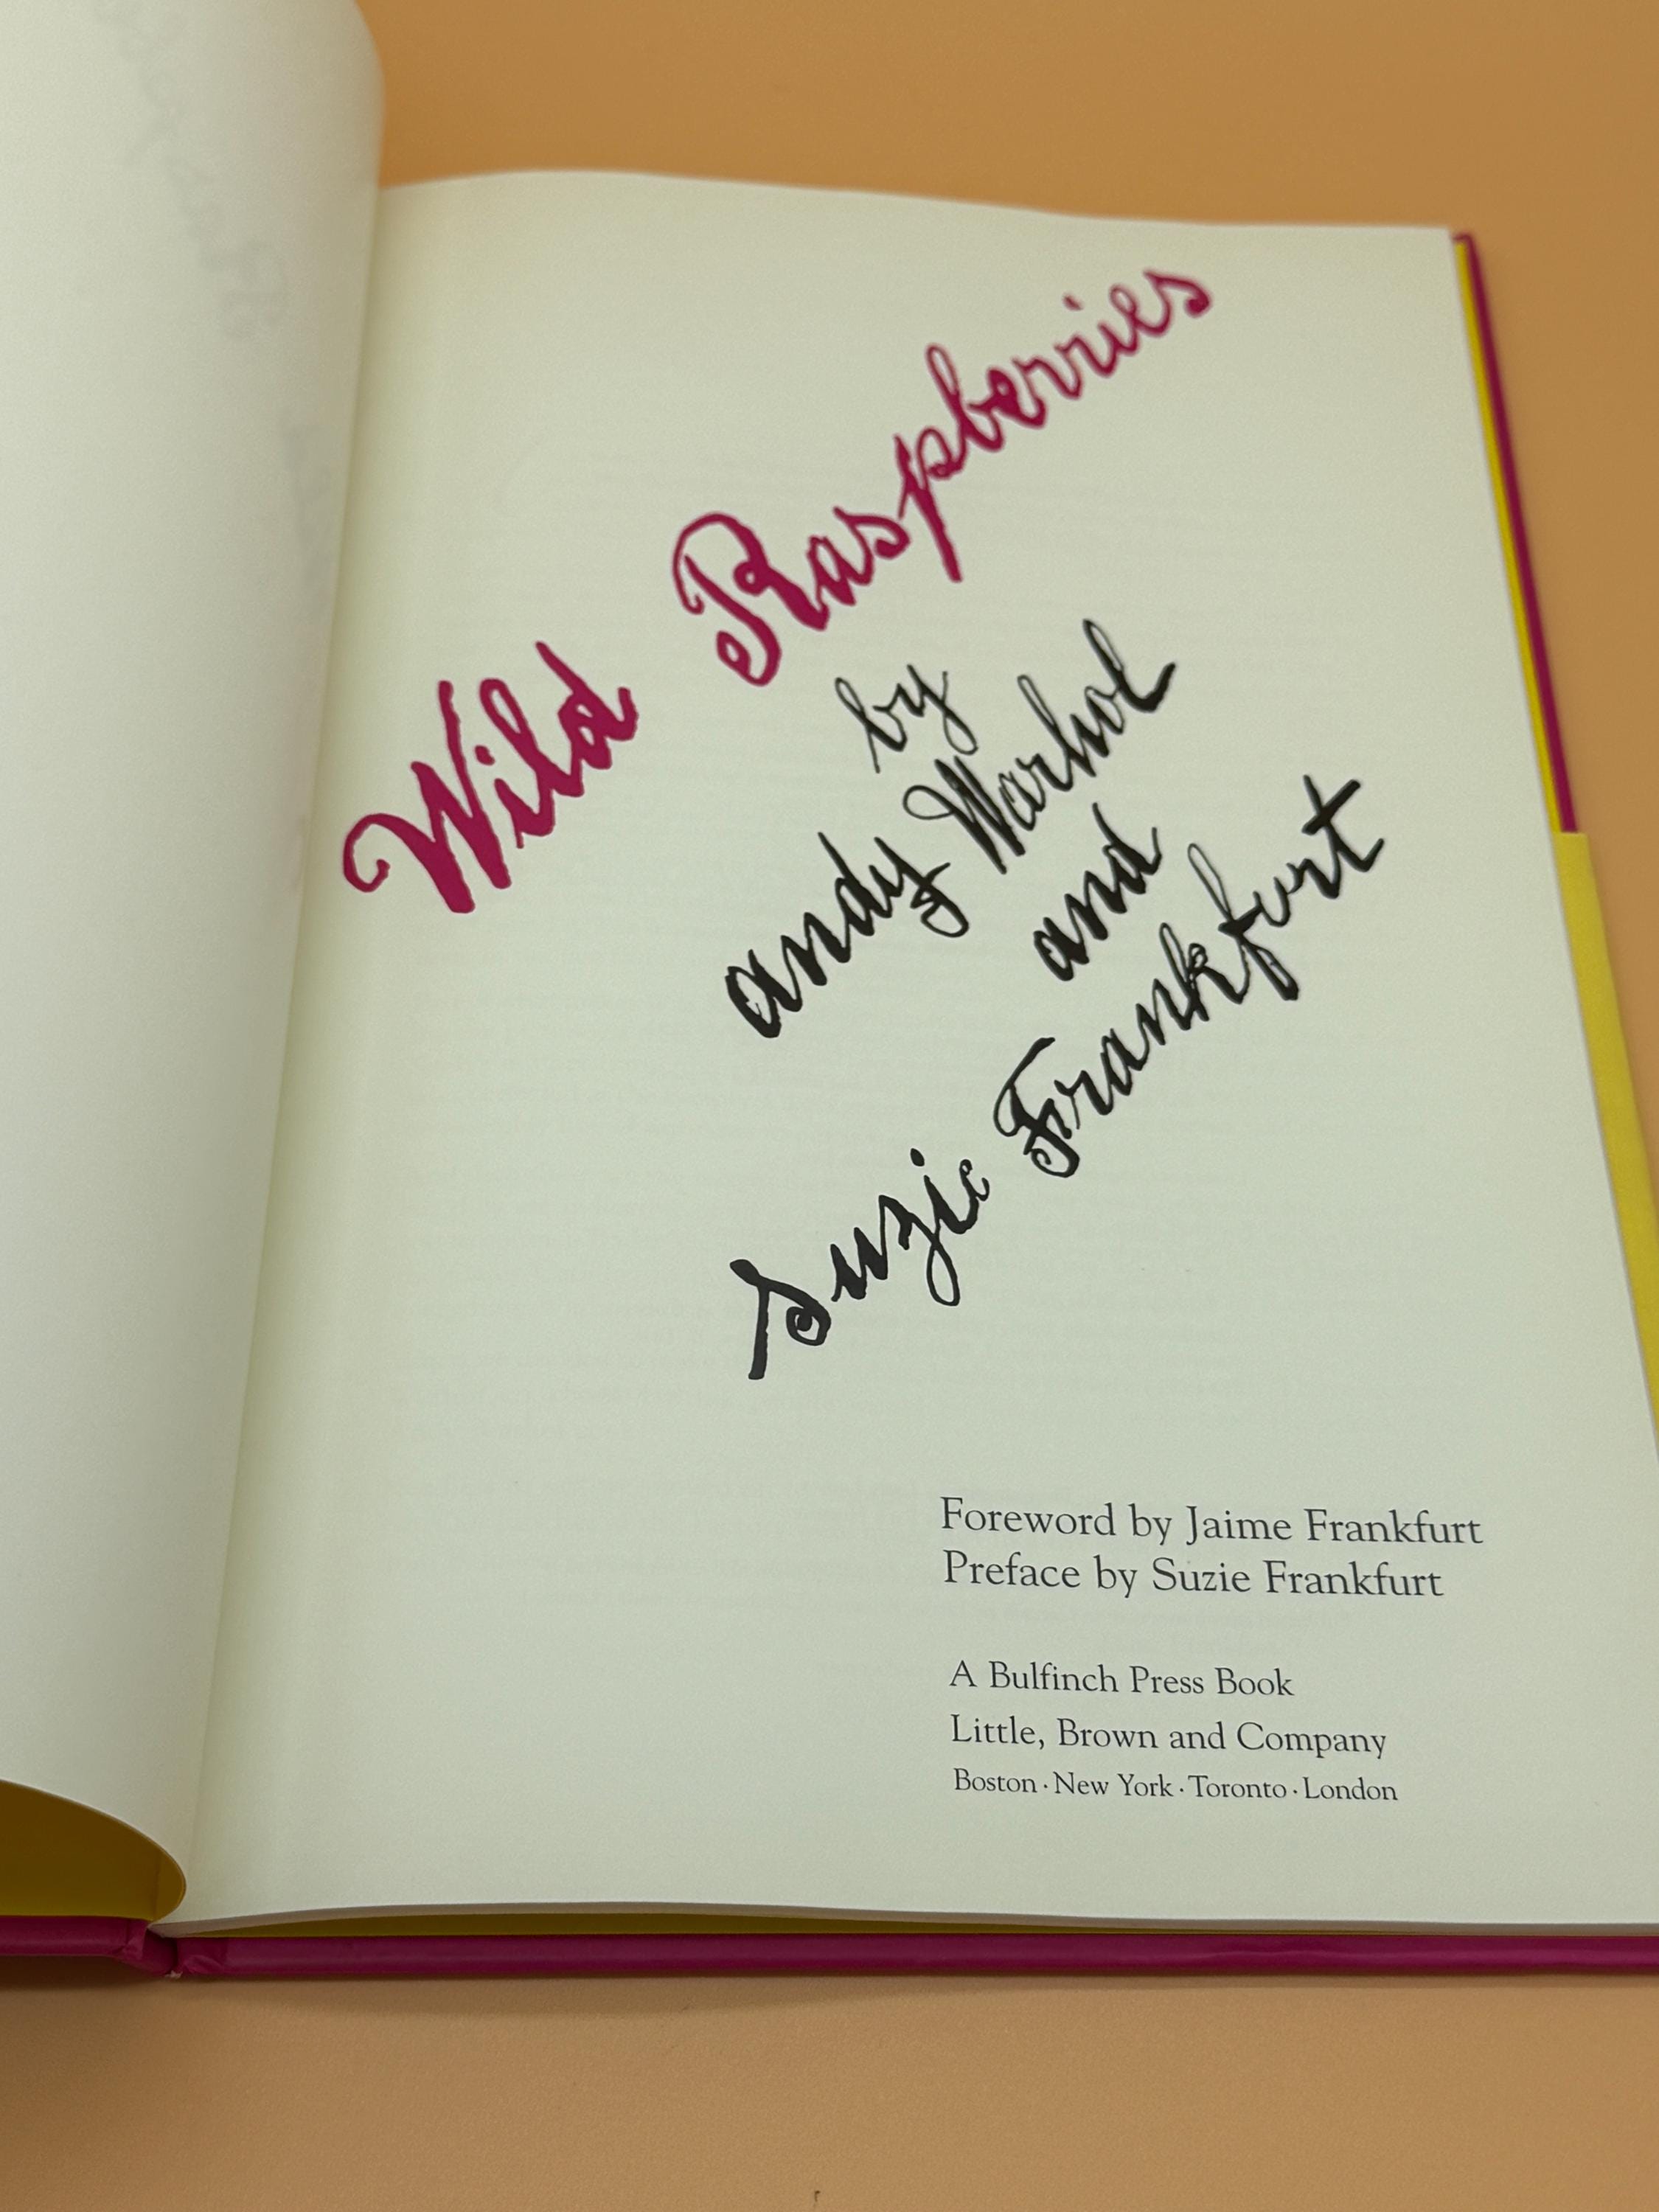 Wild Raspberries
by
andy Warhol
and
Suzie Frankfurt
Foreword by Jaime Frankfurt
Preface by Suzie Frankfurt
A Bulfinch Press Book
Little, Brown and Company
Boston · New York · Toronto · London